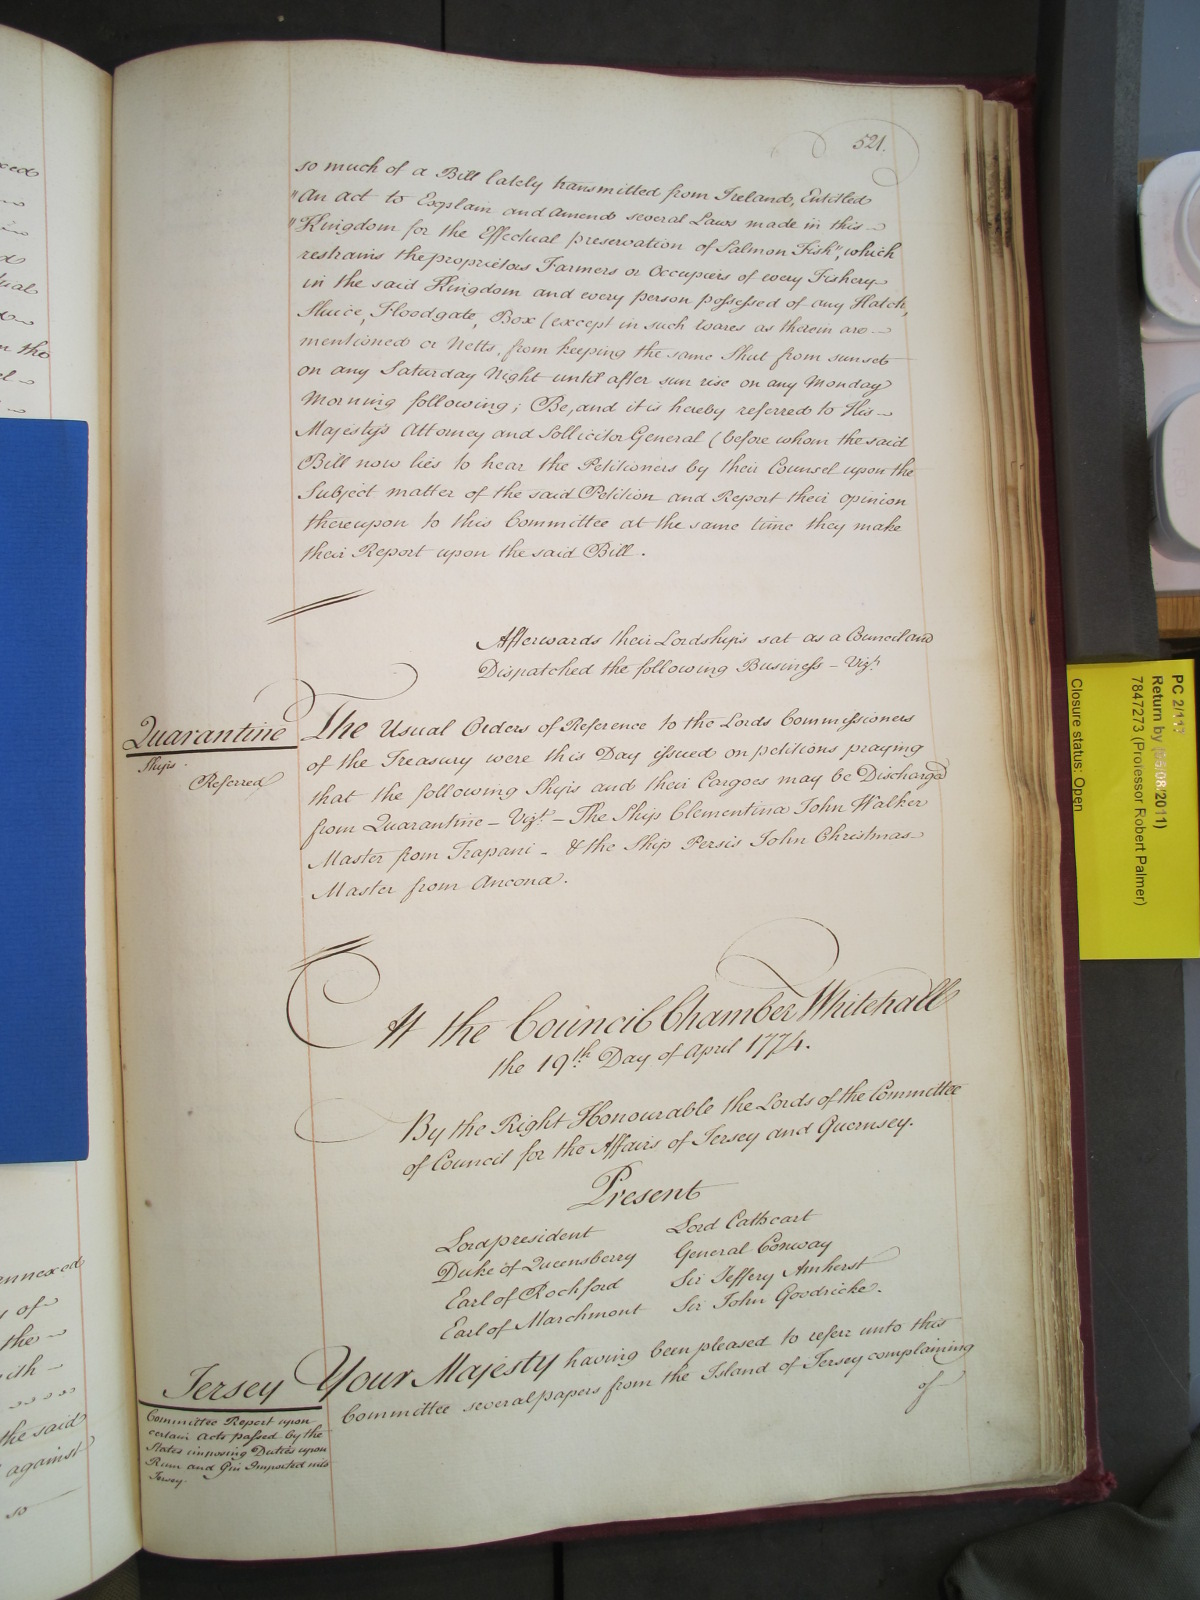 521.
so much of a Bill lately transmitted from Ireland, Entitled
"An act to Explain and amend several Laws made in this
"Kingdom for the Effectual preservation of Salmon Fish", which
restrains the proprietors Farmers or Occupiers of every Fishery
in the said Kingdom and every person possessed of any Hatch,
Sluice, Floodgate, Box (except in such Wares as therein are
mentioned or Netts, from keeping the same Shut from sunset
on any Saturday Night until after sun rise on any Monday
Morning following; Be, and it is hereby referred to His
Majesty's Attorney and Sollicitor General (before whom the said
Bill now lies to hear the Petitioners by their Counsel upon the
Subject matter of the said Petition and Report their opinion
thereupon to this Committee at the same time they make
their Report upon the said Bill.
Afterwards their Lordships sat as a Council and
Dispatched the following Business - Vizt.
Quarantine
Ships
Referred
The Usual Orders of Reference to the Lords Commissioners
of the Treasury were this Day issued on petitions praying
that the following Ships and their Cargoes may be Discharged
from Quarantine - Vizt. - The Ship Clementina John Walker
Master from Trapani - & the Ship Persis John Christmas
Master from Ancona.
At the Council Chamber Whitehall
the 19th. Day of April 1774.
By the Right Honourable the Lords of the Committee
of Council for the Affairs of Jersey and Guernsey.
Present
Lord president Lord Cathcart
Duke of Queensberry General Conway
Earl of Rochford Sir Jeffery Amherst
Earl of Marchmont Sir John Goodricke.
Jersey
Committee Report upon
certain Acts passed by the
States imposing Duties upon
Rum and Gin Imported into
Jersey.
Your Majesty having been pleased to referr unto this
Committee several papers from the Island of Jersey complaining
of
annexed
y of
the
with
the said
against
so
PC 2/117
Return by (06/08/2011)
7847273 (Professor Robert Palmer)
Closure status: Open